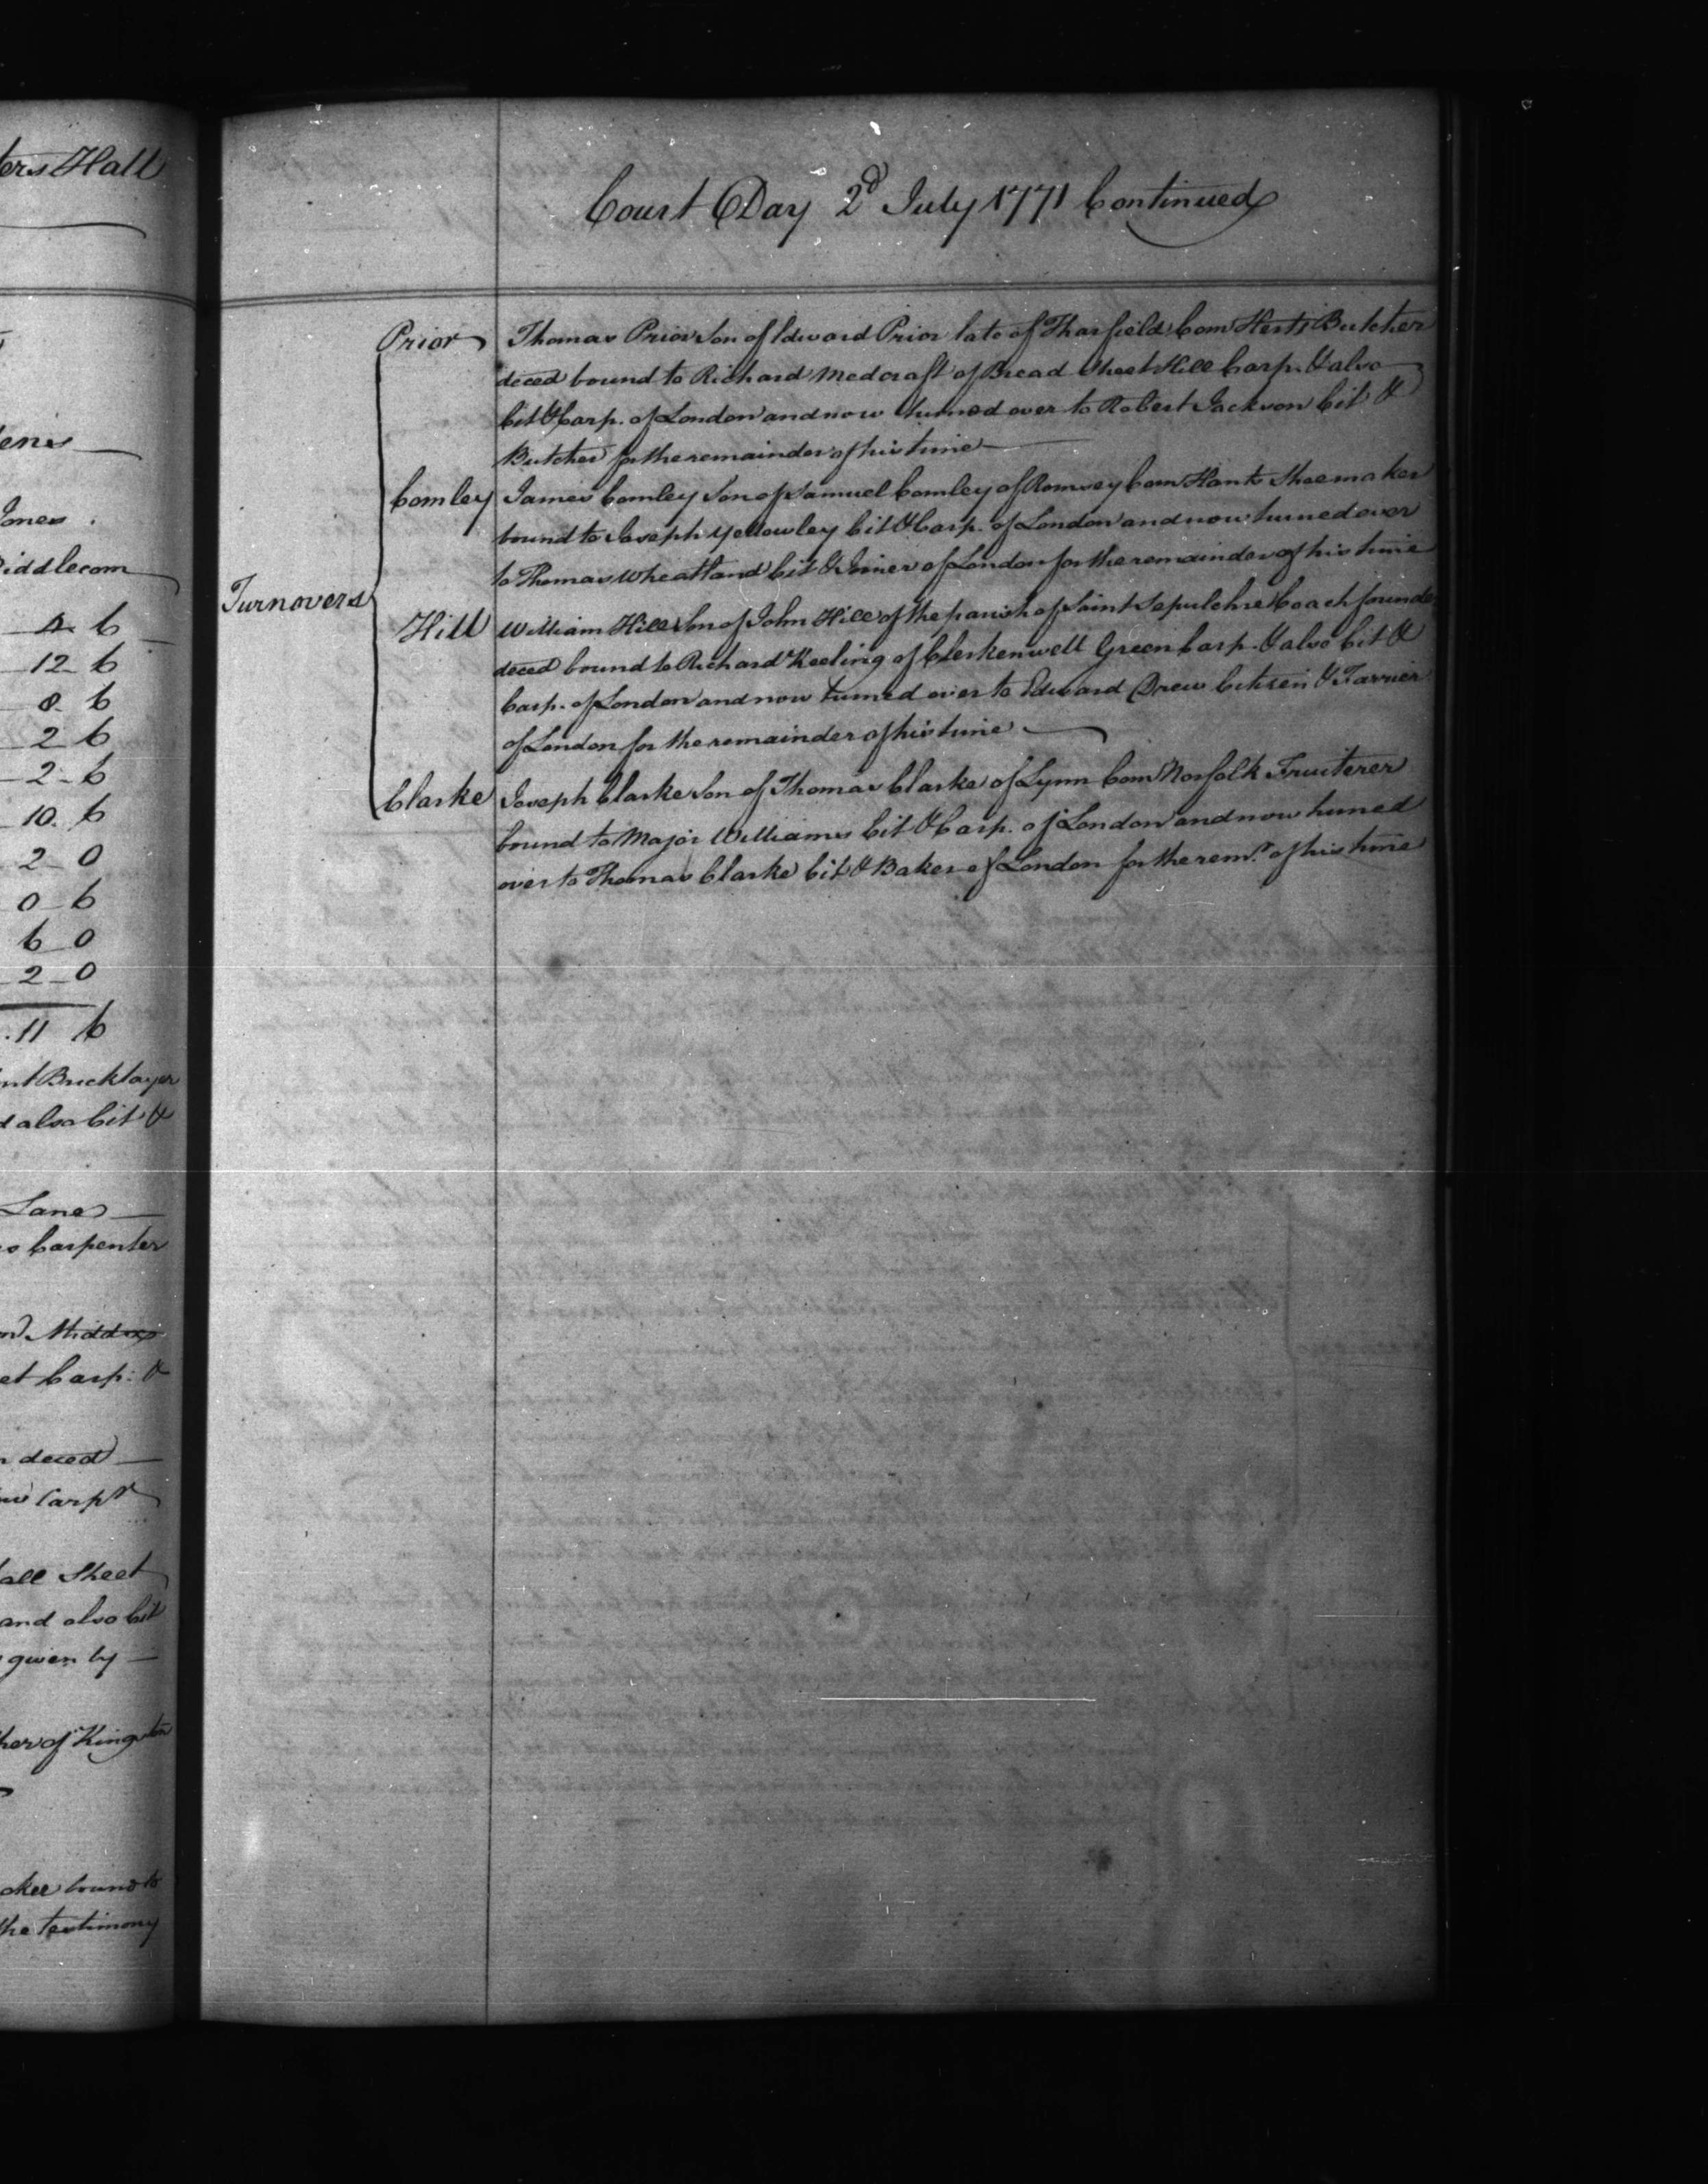 ters Hall
ens
Jones.
Riddlecom
4 6
12 6
8 6
2 6
2 6
10. 6
2 0
0 6
6 0
2 0
.11 6
nt Bricklayer
d also Cit &
Lane
Carpenter
Middx
et Carp: &
deced
Carpr
all Street
and also Cit
given by
her of Kingston
oker bound to
the testimony
Court Day 2d July 1771 Continued
Turnovers
Prior Thomas Prior Son of Edward Prior late of Tharfield Com Herts Butcher
deced bound to Richard Medcraft of Bread Street Hill Carp. & also
Cit & Carp. of London and now turned over to Robert Jackson Cit &
Butcher for the remainder of his time
Comley James Comley Son of Samuel Comley of Romsey Com Hants Shoemaker
bound to Joseph Yellowley Cit & Carp. of London and now turned over
to Thomas Wheatland Cit & Joiner of London for the remainder of his time
Hill William Hill Son of John Hill of the parish of Saint Sepulchre Coach founder
deced bound to Richard Keeling of Clerkenwell Green Carp. & also Cit &
Carp. of London and now turned over to Edward Drew Citizen & Farrier
of London for the remainder of his time
Clarke Joseph Clarke Son of Thomas Clarke of Lynn Com Norfolk Fruiterer
bound to Major Williams Cit & Carp. of London and now turned
over to Thomas Clarke Cit & Baker of London for the remr. of his time